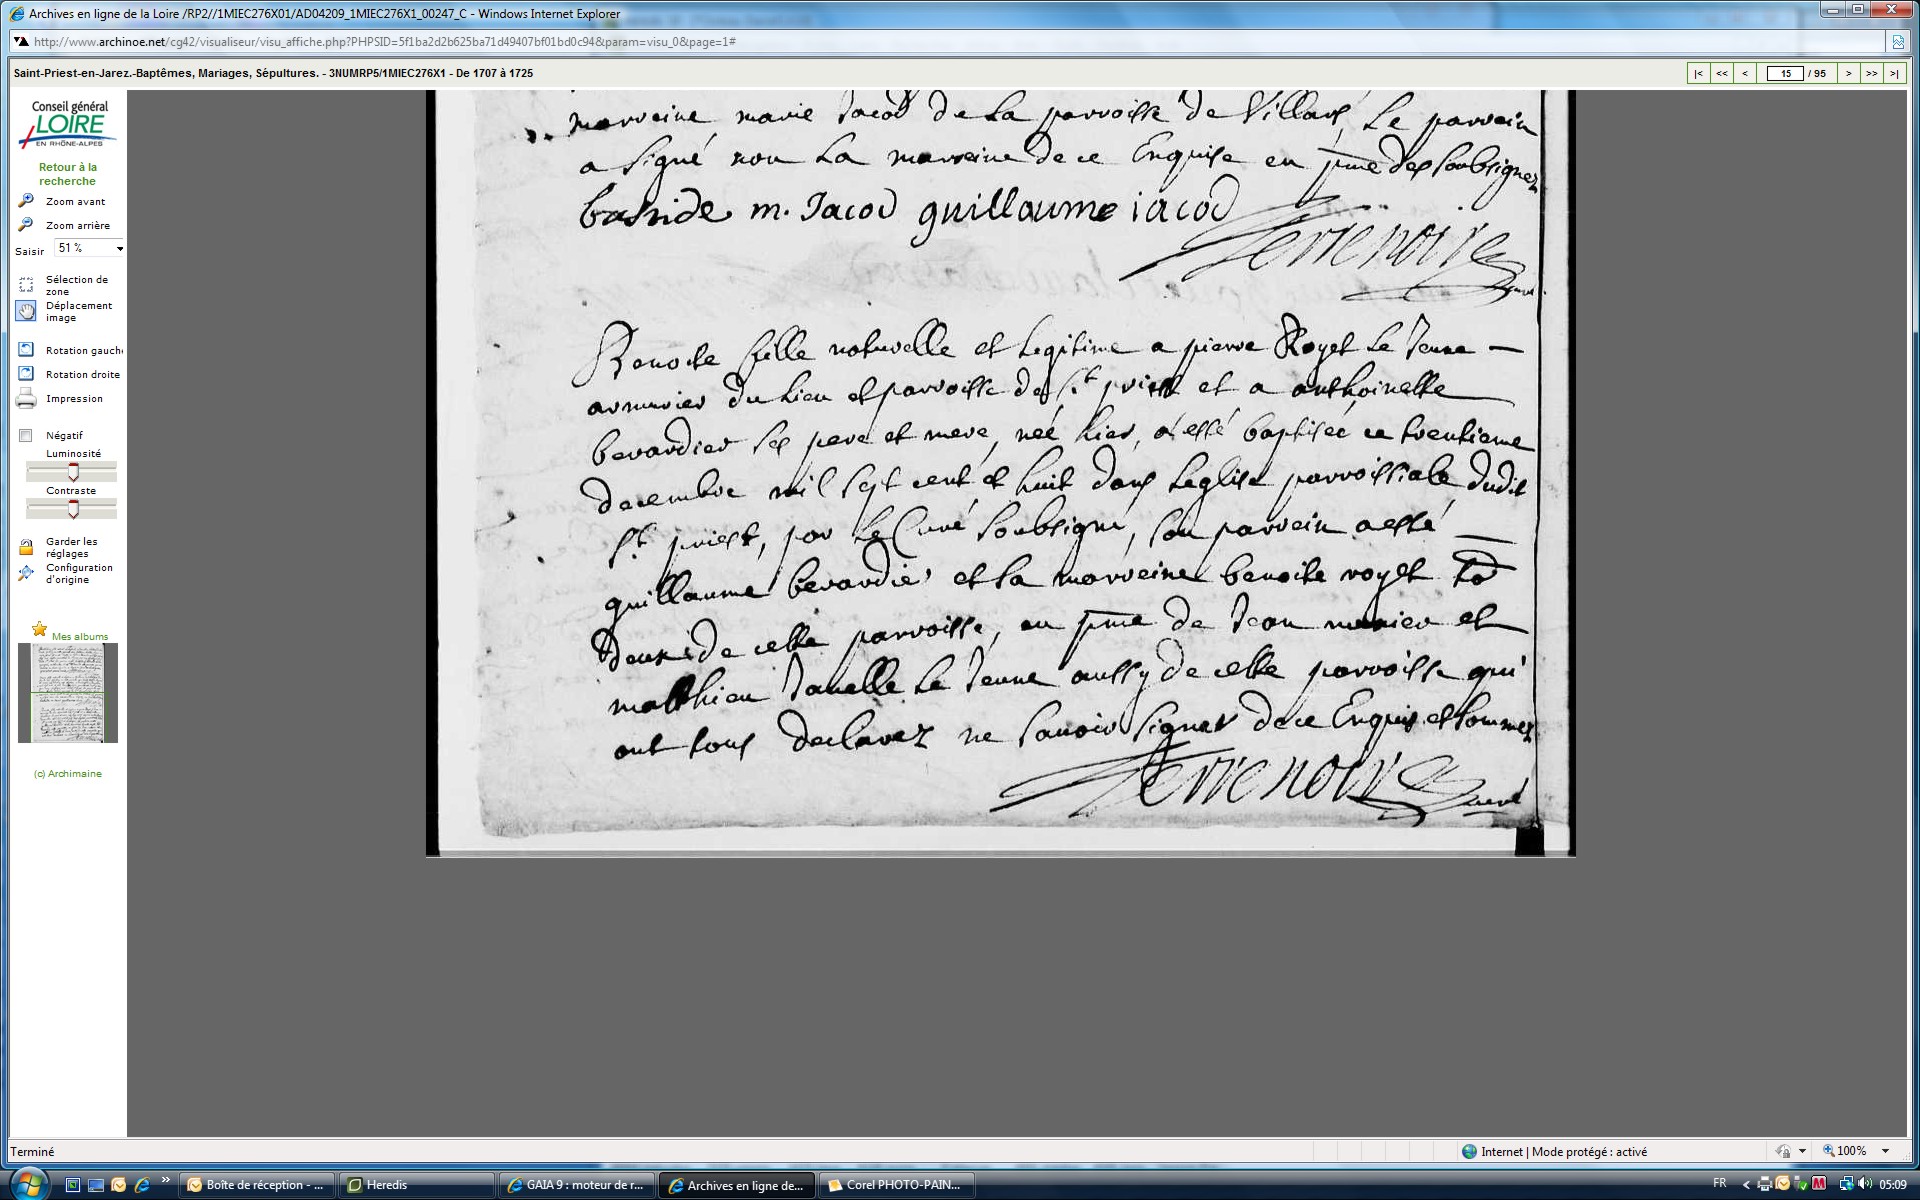 Archives en ligne de la Loire /RP2//1MIEC276X01/AD04209_1MIEC276X1_00247_C - Windows Internet Explorer
http://www.archinoe.net/cg42/visualiseur/visu_affiche.php?PHPSID=5f1ba2d2b625ba71d49407bf01bd0c94&param=visu_0&page=1#
Saint-Priest-en-Jarez.-Baptêmes, Mariages, Sépultures. - 3NUMRP5/1MIEC276X1 - De 1707 à 1725
|< << < 15 / 95 > >> >|
Conseil général
LOIRE
EN RHÔNE-ALPES
Retour à la
recherche
Zoom avant
Zoom arrière
Saisir 51 %
Sélection de
zone
Déplacement
image
Rotation gauch
Rotation droite
Impression
Négatif
Luminosité
Contraste
Garder les
réglages
Configuration
d'origine
Mes albums
(c) Archimaine
marreine marie Jacod de La parroisse de Villars, Le parrein
a signé non La marreine de ce Enquise en pnce des soubsignez
bastide m. Jacod guillaume iacod
Terrenoire
curé
Benoite fille naturelle et Legitime a pierre Royet Le Jeune
armurier du Lieu et parroisse de St priest et a anthoinette
berardier ses pere et mere, neé hier, a esté baptiseé ce trentieme
decembre mil sept cent et huit dans Leglise parroissiale dudit
St priest, par Le Curé soubsigné, son parrein a esté
guillaume berardier et La marreine benoite royet
deux de cette parroisse, en pnce de Jean et
matthieu Le Jeune aussy de cette parroisse qui
ont tous declarez ne sauoir signer de ce Enquis et sommez
Terrenoire curé
Terminé
Internet | Mode protégé : activé
100%
Boîte de réception - ...
Heredis
GAIA 9 : moteur de r...
Archives en ligne de...
Corel PHOTO-PAIN...
FR
05:09